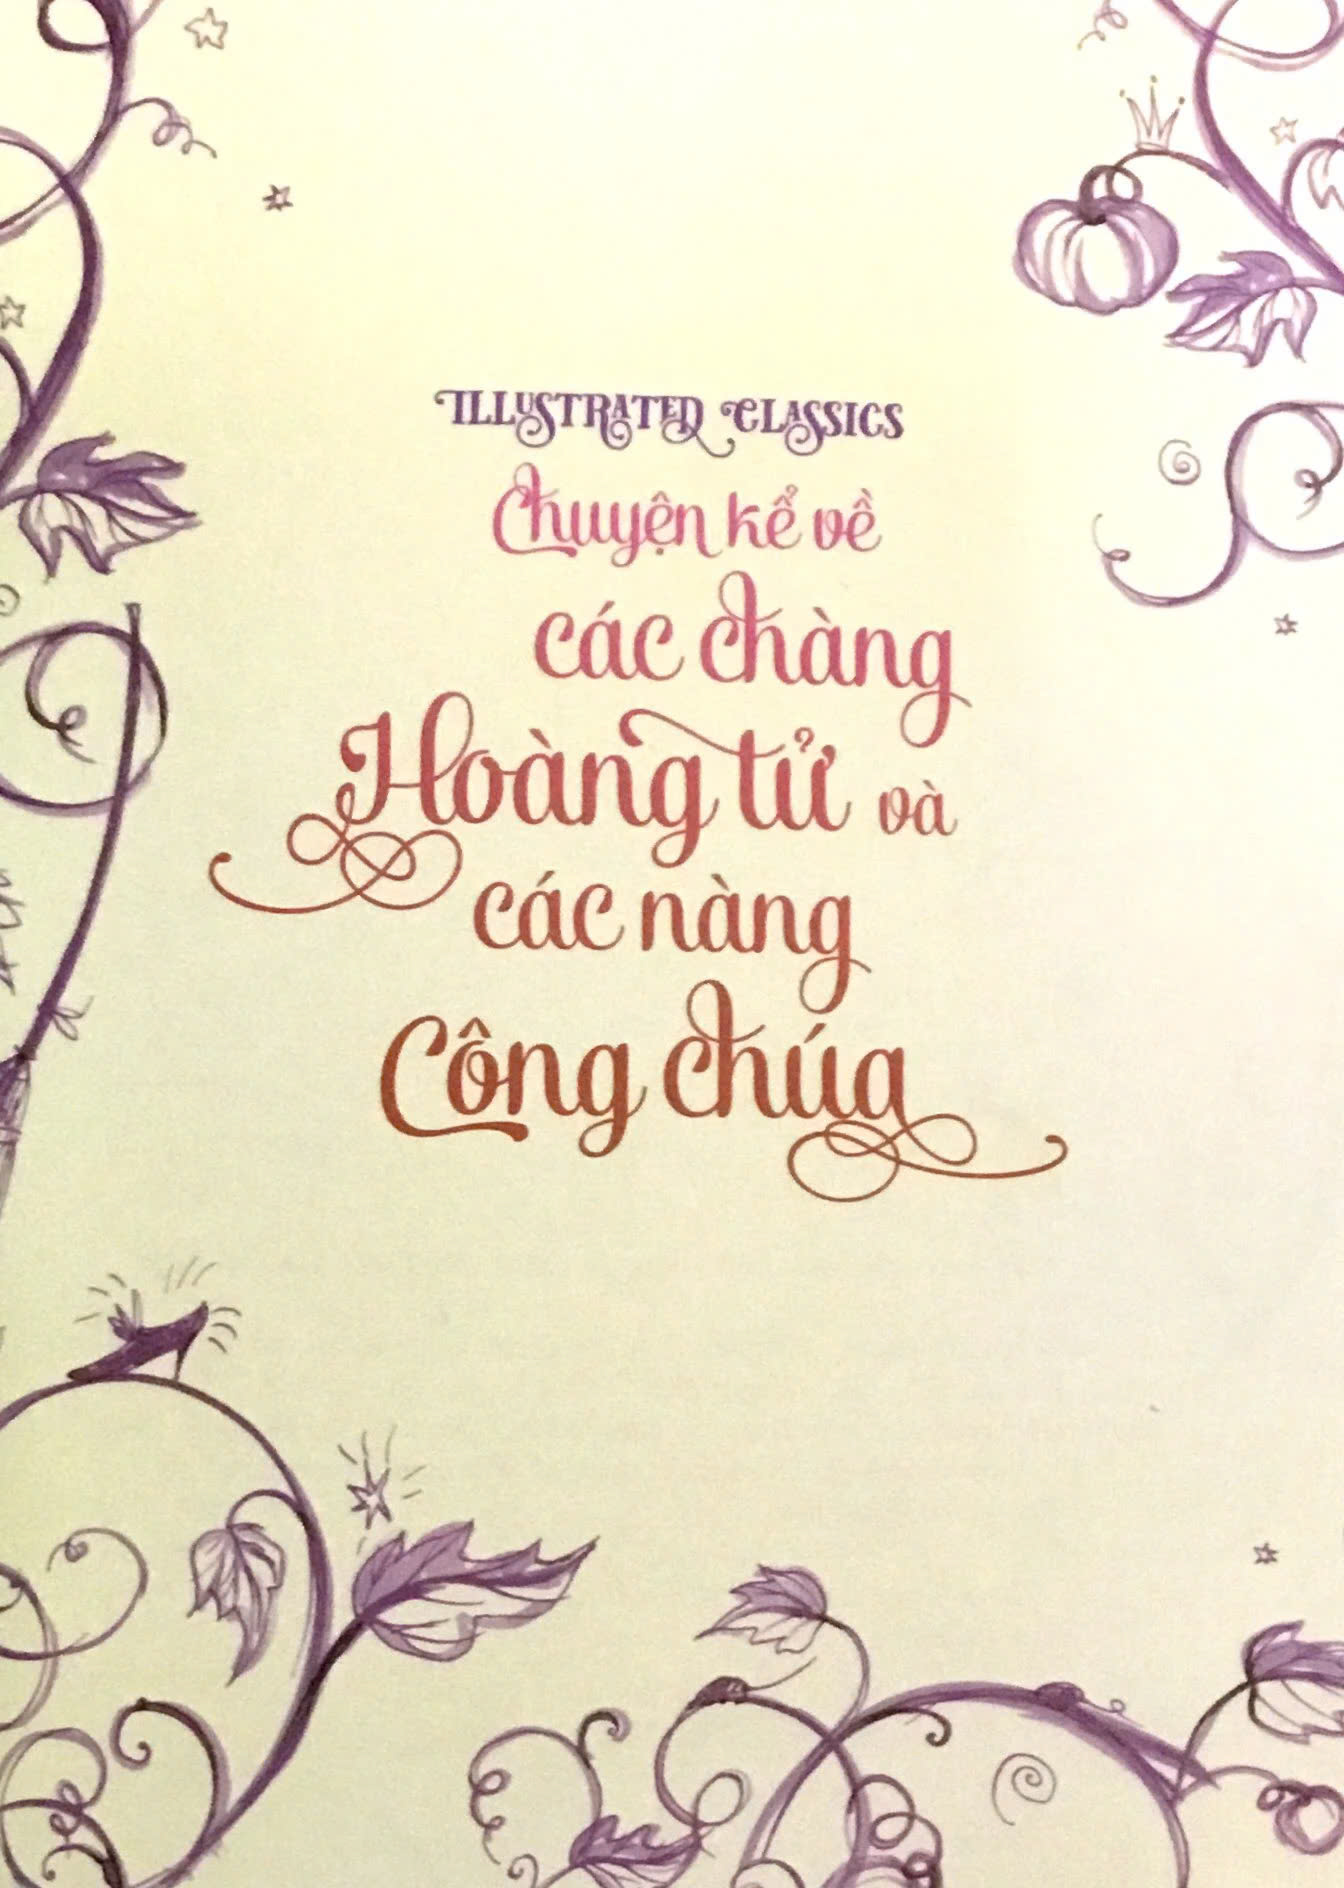 ILLUSTRATED CLASSICS
Chuyện kể về
các chàng
Hoàng tử và
các nàng
Công chúa